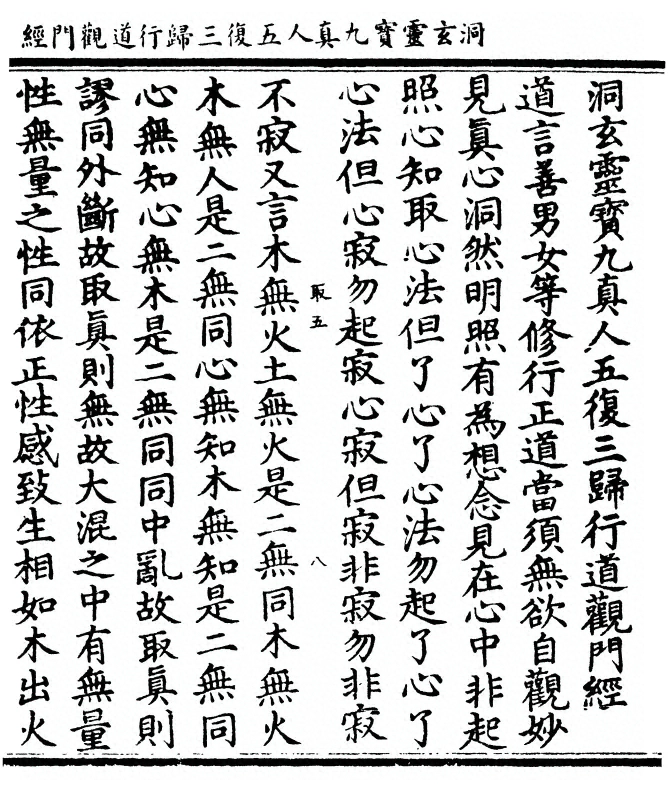 洞玄靈寶九真人五復三歸行道觀門經
洞玄靈寶九真人五復三歸行道觀門經
道言善男女等修行正道當須無欲自觀妙
見真心洞然明照有為想念見在心中非起
照心知取心法但了心了心法勿起了心了
心法但心寂勿起寂心寂但寂非寂勿非寂
馭五
八
不寂又言木無火土無火是二無同木無火
木無人是二無同心無知木無知是二無同
心無知心無木是二無同同中亂故取真則
謬同外斷故取真則無故大混之中有無量
性無量之性同依正性感致生相如木出火